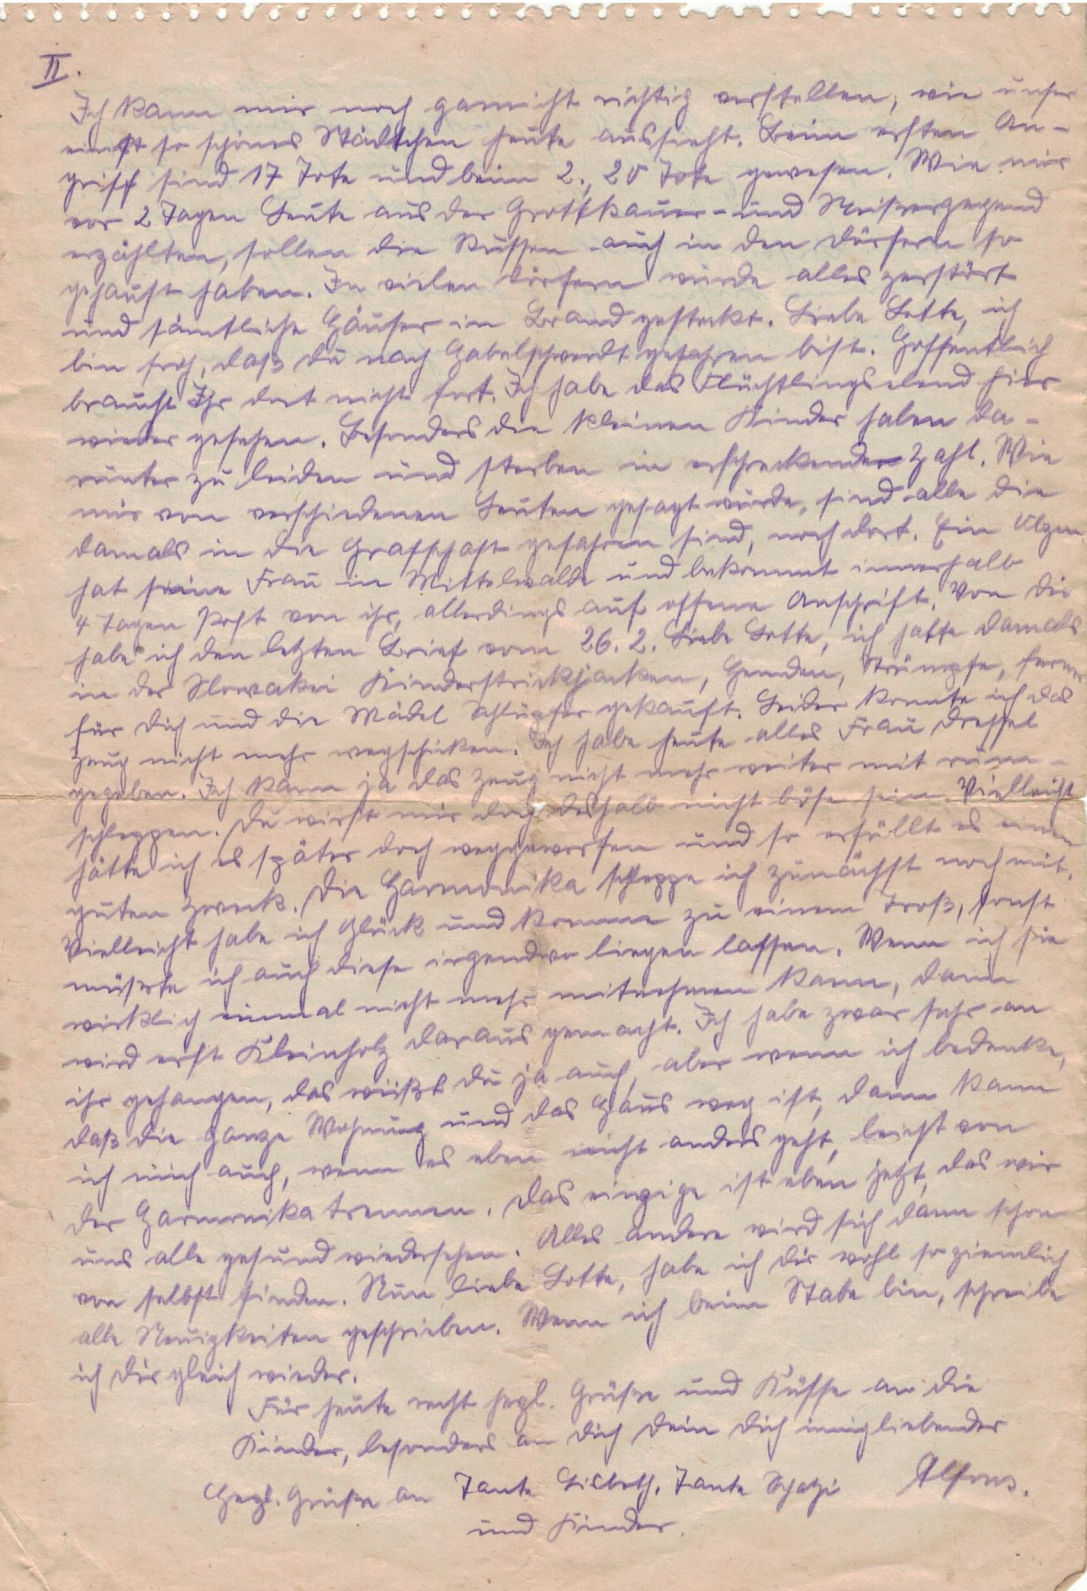 II.
Ich kann mir noch garnicht richtig vorstellen, wie unser
einst so schönes Städtchen heute aussieht. Beim ersten An-
griff sind 17 Tote und beim 2., 20 Tote gewesen. Wie mir
vor 2 Tagen Leute aus der Grottkauer- und Neissergegend
erzählten, sollen die Russen auch in den Dörfern so
gehaust haben. In vielen Dörfern wurde alles zerstört
und sämtliche Häuser in Brand gesteckt. Liebe Lotte, ich
bin froh, daß Du nach Habelschwerdt gefahren bist. Hoffentlich
braucht Ihr dort nicht fort. Ich habe das Flüchtlingselend hier
wieder gesehen. Besonders die kleinen Kinder haben da-
runter zu leiden und sterben in erschreckender Zahl. Wie
mir von verschiedenen Leuten gesagt wurde, sind alle die
damals in die Grafschaft gefahren sind, noch dort. Ein
hat seine Frau in Mittelwalde und bekommt innerhalb
4 Tagen Post von ihr, allerdings auf offene Anschrift. Von Dir
habe ich den letzten Brief vom 26. 2. Liebe Lotte, ich hatte damals
in der Slowakei Kinderstrickjacken, Hemden, Strümpfe, ferner
für Dich und die Mädel Schlüpfer gekauft. Leider konnte ich das
Zeug nicht mehr wegschicken. Ich habe heute alles Frau Dressel
gegeben. Ich kann ja das Zeug nicht mehr weiter mit rum-
schleppen. Du wirst mir doch deshalb nicht böse sein. Vielleicht
hätte ich es später doch weggeworfen und so erfüllt es einen
guten Zweck. Die Harmonika schleppe ich zunächst noch mit.
Vielleicht habe ich Glück und komme zu einem Troß, sonst
müsste ich auch diese irgendwo liegen lassen. Wenn ich sie
wirklich einmal nicht mehr mitnehmen kann, dann
wird erst Kleinholz daraus gemacht. Ich habe zwar sehr an
ihr gehangen, das weißt Du ja auch, aber wenn ich bedenke,
daß die ganze Wohnung und das Haus weg ist, dann kann
ich mich auch, wenn es eben nicht anders geht, leicht von
der Harmonika trennen. Das einzige ist eben jetzt, das wir
uns alle gesund wiedersehen. Alles andere wird sich dann schon
von selbst finden. Nun liebe Lotte, habe ich Dir wohl so ziemlich
alle Neuigkeiten geschrieben. Wenn ich beim Stabe bin, schreibe
ich Dir gleich wieder.
Für heute recht herzl. Grüße und Küsse an die
Kinder, besonders an Dich Dein Dich inniglliebender
Herzl. Grüße an Tante Lisbeth, Tante Schatzi Alfons.
und Kinder.